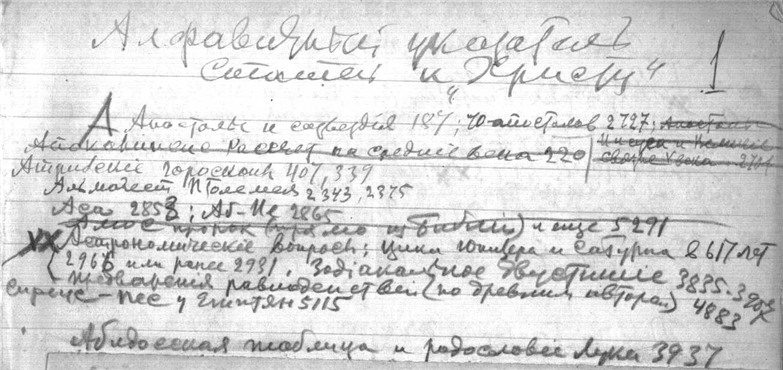 Алфавитный указатель
статей к "Христу"
1
А Апостолы и созвездия 187; 70 апостолов 2727; Апостолы
Апокалипсис рассвет на средние века 220
Атрибеис гороскоп 407, 339
Альмагест Птолемея 2343, 2375
Аса 2858; Аб-Из 2865
Амос пророк (прямо из Библии) и еще 5291
XX Астрономические вопросы; Цикл Юпитера и Сатурна в 617 лет
(2966 или ранее 2931. Зодиакальное двустишие 3835-3
предварения равноденствий (по древним авторам) 4883
Сириус - пес у египтян 5115
Абидосская таблица и родословие Луки 3937